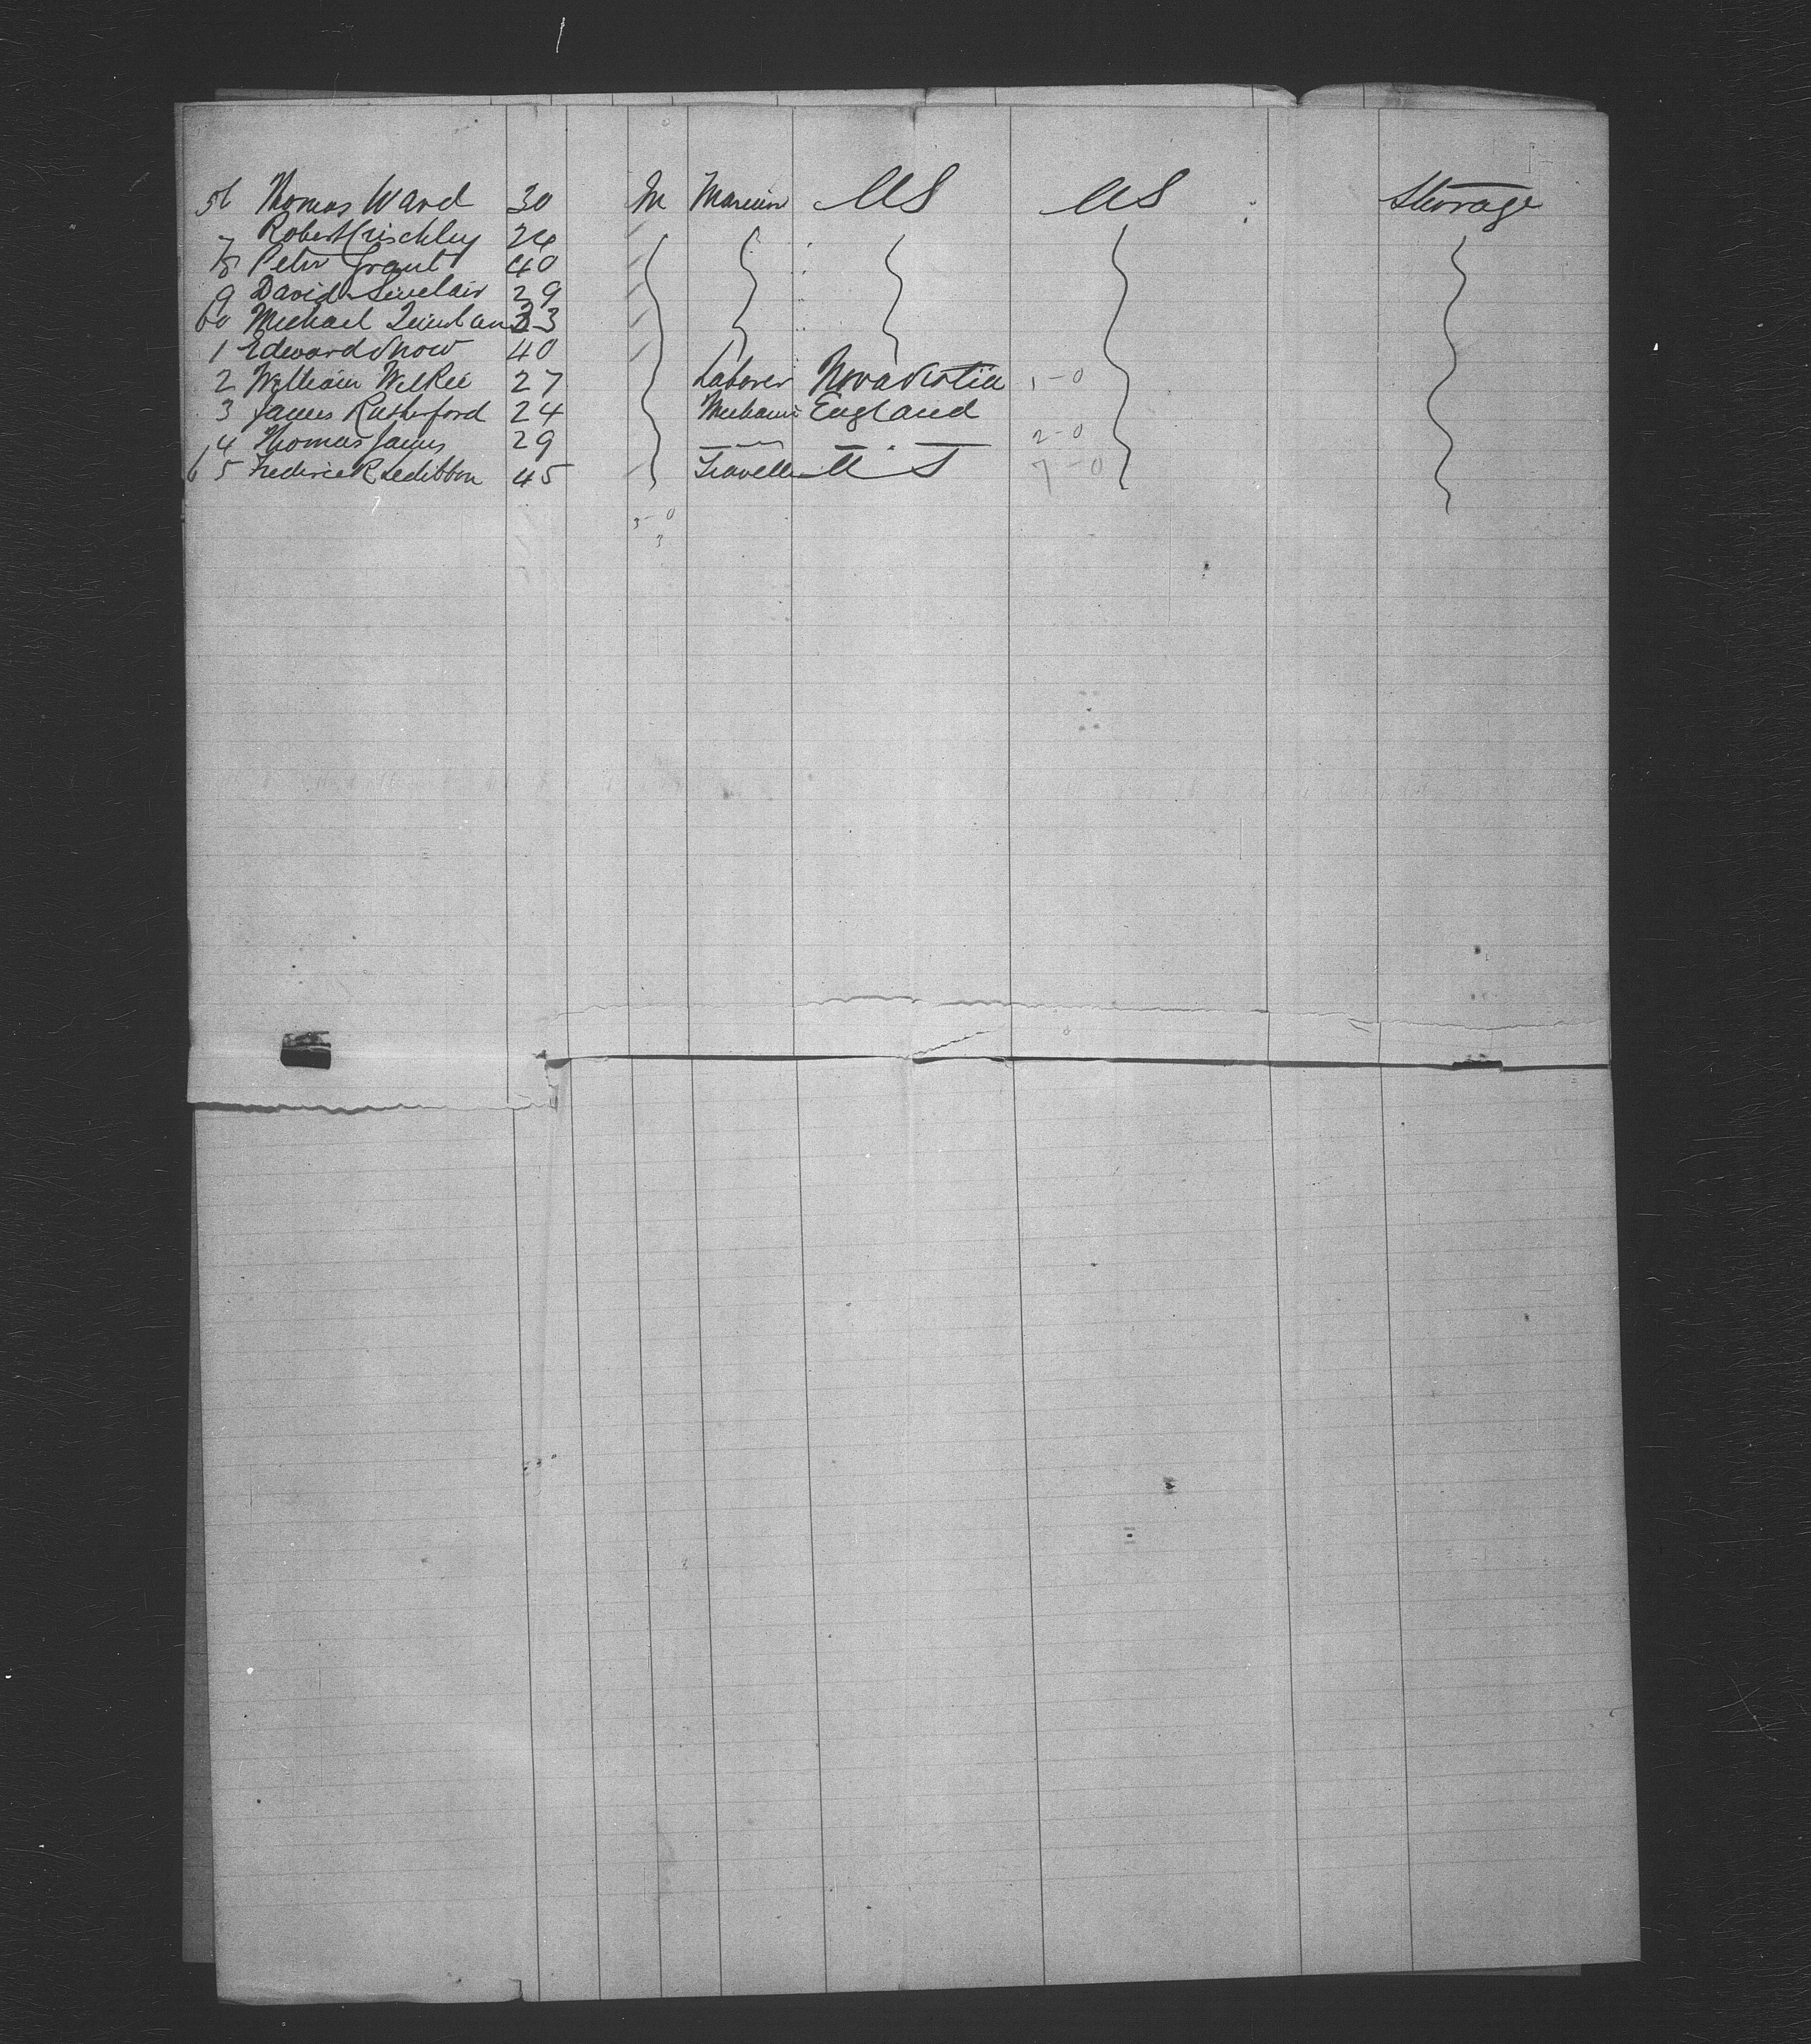 56 Thomas Ward 30 M Mariner US US Steerage
7 Robert Crischley 24
8 Peter Grant 40
9 David Sinclair 29
60 Michael 33
1 Edward Snow 40
2 William Wilkie 27 Laborer Nova Scotia 1-0
3 James Rutherford 24 Mechanic England
4 Thomas James 29 2-0
65 Frederick 45 Traveller U S 7-0
3-0
3